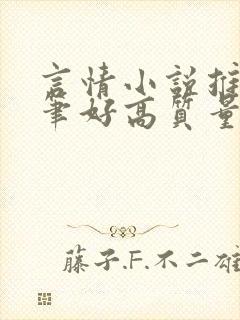 言情小说推
筆好高質量
藤子.F.不二雄